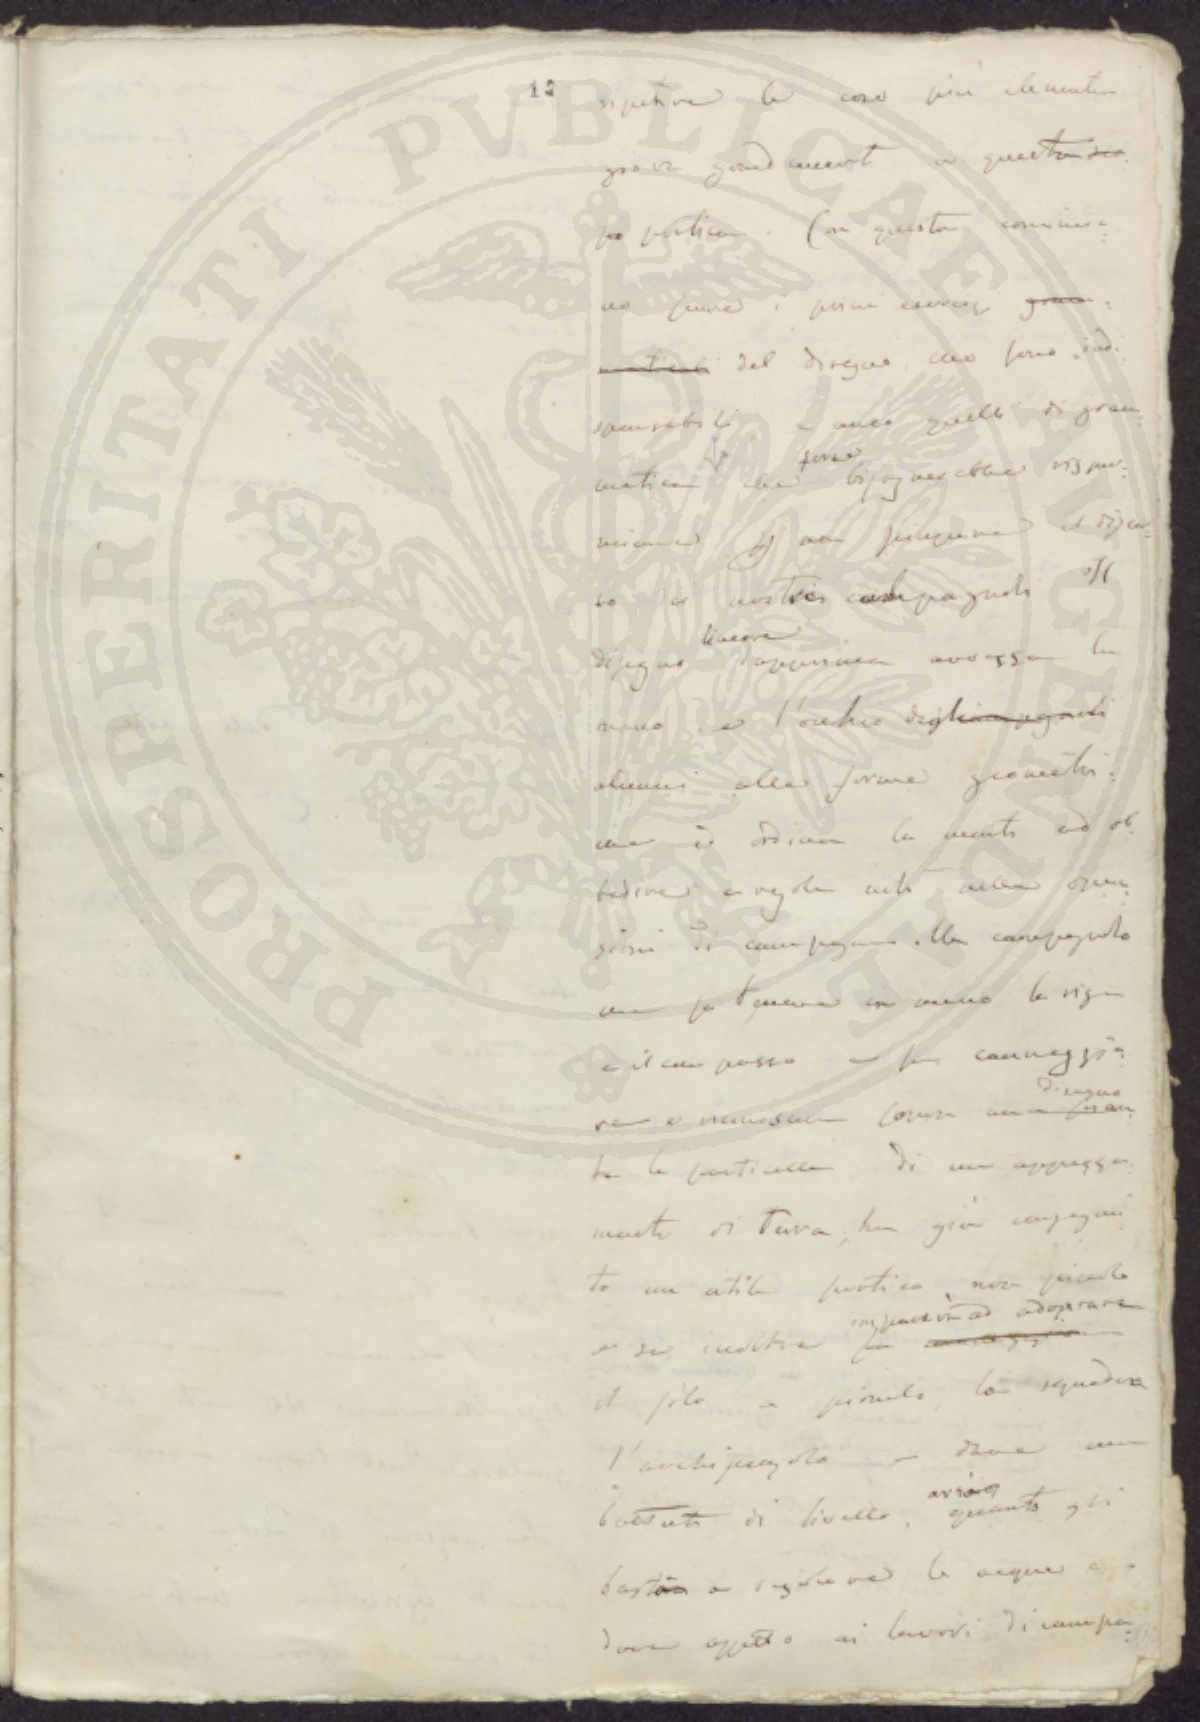 12
ripetere le cose più elementari
giova grandemente a questo sco-
po pratico. Con questa comincia-
no pure i primi esercizi gram-
maticali del disegno, che sono indi-
spensabili e anco quelli di gram-
matica che forse bisognerebbe rispar-
miare
so dei nostri campagnoli
disegno lineare dapprima avvezza la
mano e l'occhio degli campagnoli
alunni alle forme geometri-
che ed ordina la mente ad ob-
bedire a regole utili nelle opera-
zioni di campagna. Un campagnolo
che sa tenere in mano la riga
e il compasso e sa
re e riconoscere sopra una pian- disegno
ta le particelle di un appezza-
mento di terra, ha già conseguito
to un utile pratico non piccolo
e se inoltre sa imparerà ad adoprare
il filo a piombo, la squadra
l'archipenzolo e dare una
battuta di livello, quanto gli
basta a regolare le acque e
dare assetto ai lavori di campa-
PROSPERITATI PUBLICAE AUGENDAE